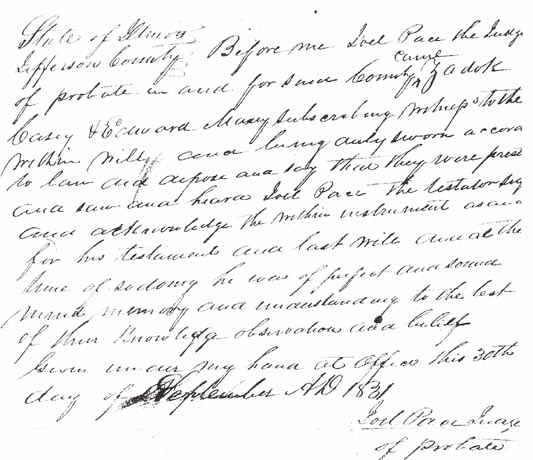 State of Illinois
Jefferson County Before me Joel Pace the Judge
of probate in and for said County came Zadok
Casey & Edward Maxey subscribing witness to the
within will and being duly sworn accord
to law and depose and say that they were prese
and saw and heard Joel Pace the testator sig
and acknowledge the within instrument as and
for his testament and last will and at the
time of so doing he was of perfect and sound
mind memory and understanding to the best
of their knowledge observation and belief
Given under my hand at office this 30th
day of September AD 1831
Joel Pace Judge
of probate